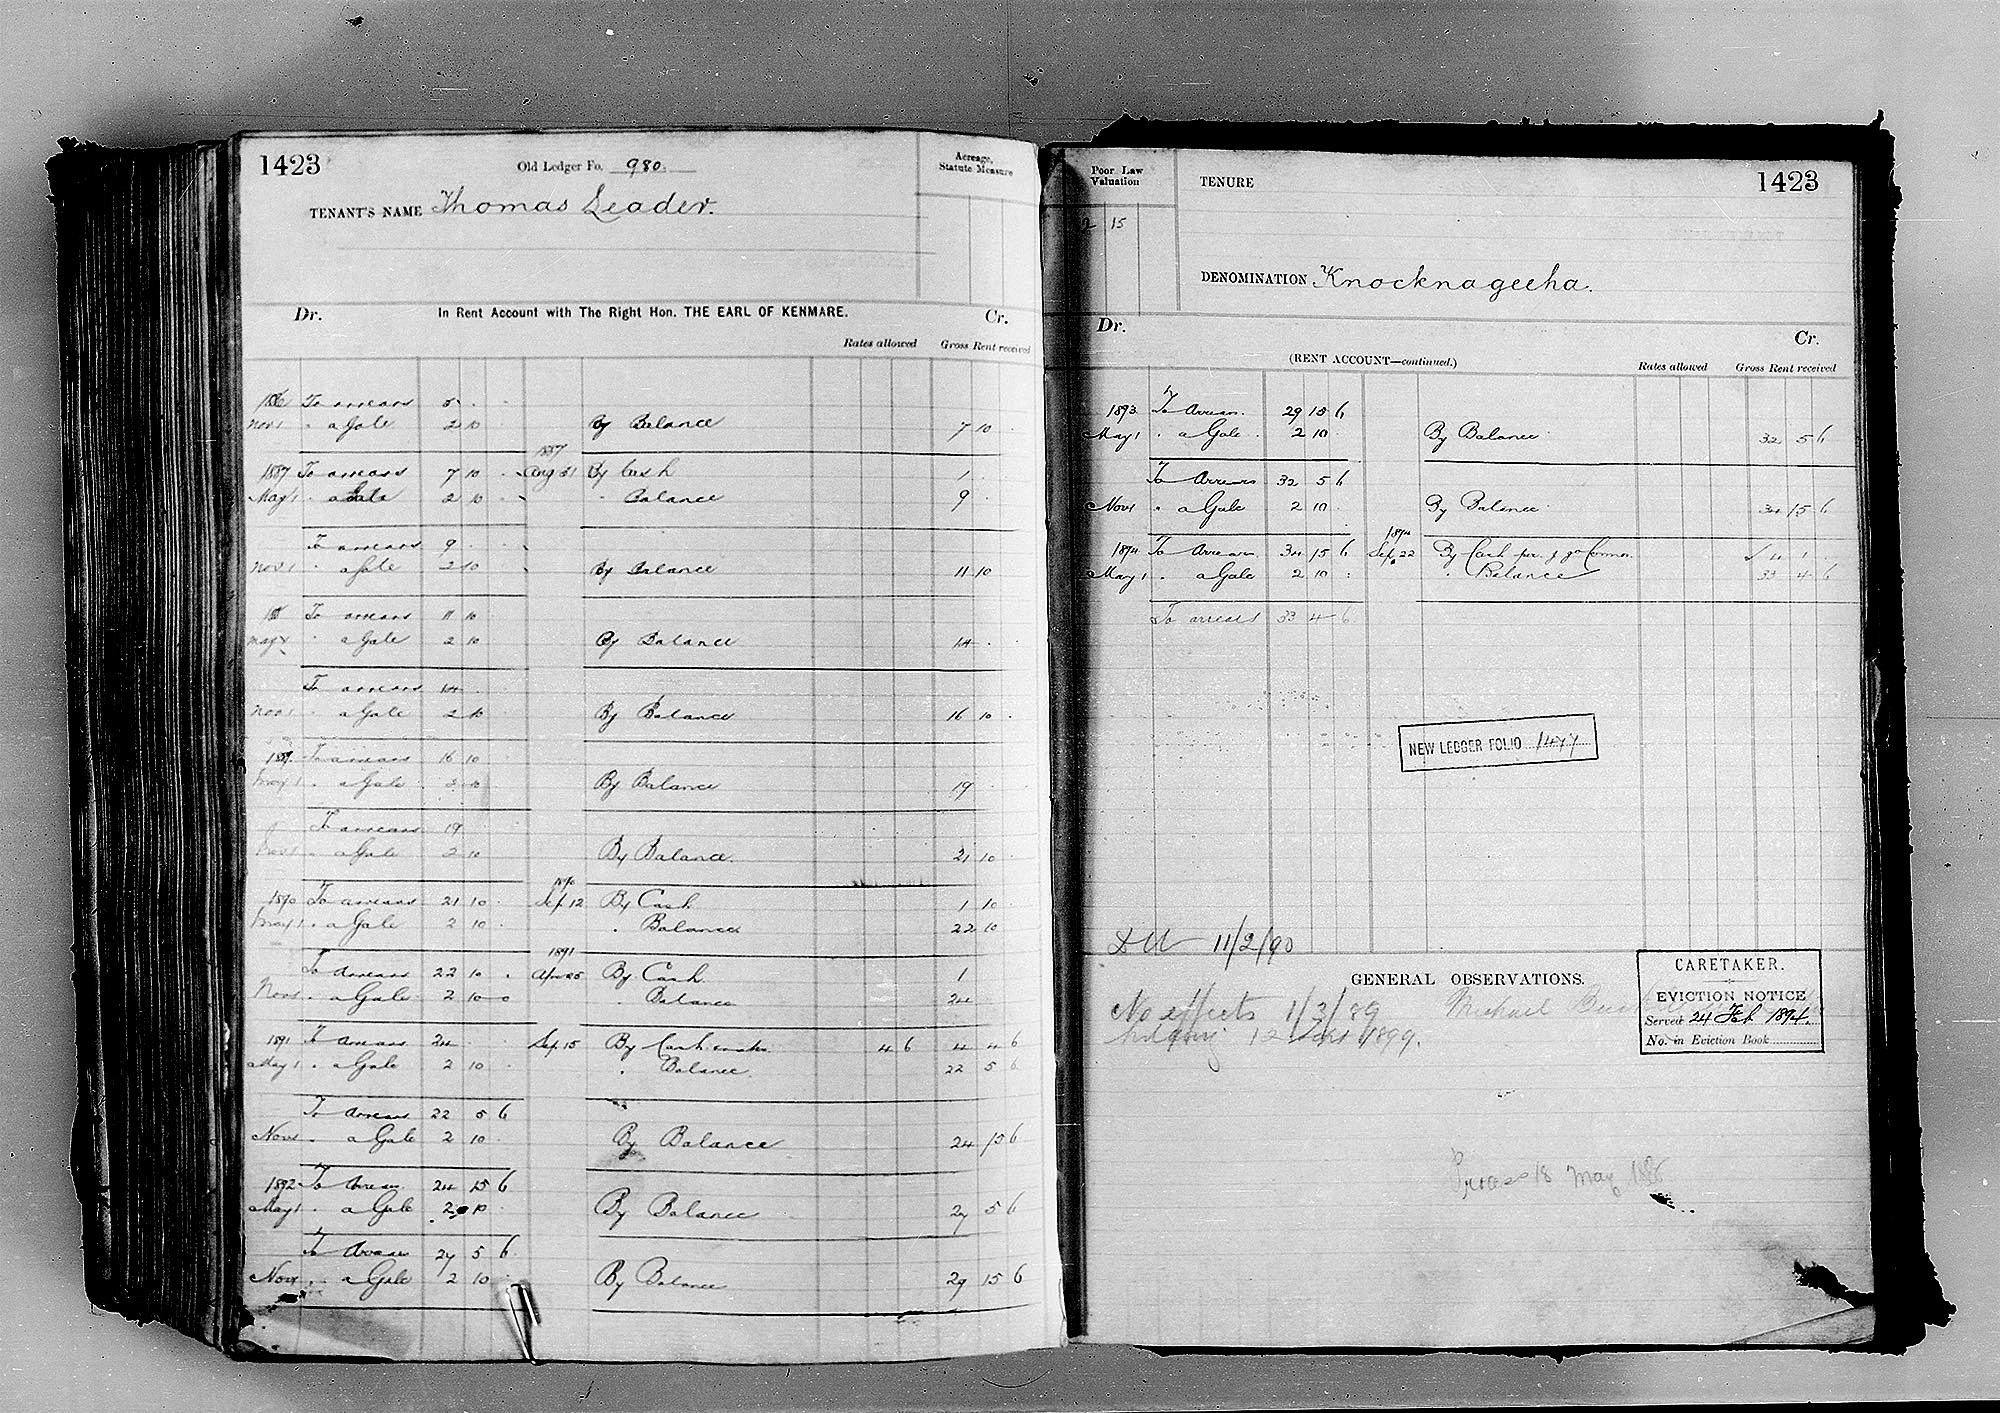 1423
Old Ledger Fo. 980.
Acreage, Statute Measure
TENANT'S NAME Thomas Leader.
Dr. In Rent Account with The Right Hon. THE EARL OF KENMARE. Cr.
Rates allowed Gross Rent received
1886 To arrears 5 . .
Nov 1 " a Gale 2 10 By Balance 7 10 .
1887
1887 To arrears 7 10 . Aug 31 By Cash 1 .
May 1 " a Gale 2 10 " Balance 9 .
To arrears 9 . .
Nov 1 " a Gale 2 10 By Balance 11 10
To arrears 11 10
May 1 " a Gale 2 10 By Balance 14 .
To arrears 14 .
Nov 1 " a Gale 2 10 By Balance 16 10 .
1889 To arrears 16 10
May 1 " a Gale 2 10 By Balance 19
To arrears 19
Nov 1 " a Gale 2 10 By Balance. 21 10
1890
1890 To arrears 21 10 Sep. 12 By Cash 1 10
May 1 " a Gale 2 10 " Balance 22 10
1891
To arrears 22 10 . By Cash 1
Nov 1 " a Gale 2 10 0 " Balance 24
1891 To arrears 24 Sep. 15 By Cash 4 6 4 4 6
May 1 " a Gale 2 10 " Balance. 22 5 6
To arrears 22 5 6
Nov 1 " a Gale 2 10 By Balance 24 15 6
1892 To Arrears 24 15 6
May 1 " a Gale 2 10 By Balance 27 5 6
To Arrears 27 5 6
Nov 1 " a Gale 2 10 By Balance 29 15 6
Poor Law Valuation
TENURE
1423
2 15
DENOMINATION Knocknageeha.
Dr. Cr.
(RENT ACCOUNT—continued.)
Rates allowed Gross Rent received
1893 To Arrears 29 15 6
May 1 " a Gale 2 10 By Balance 32 5 6
To Arrears 32 5 6
Nov 1 " a Gale 2 10 By Balance 34 15 6
1894
1894 To Arrears 34 15 6 Sep. 22 By Cash per 4 1
May 1 " a Gale 2 10 : " Balance 33 4 6
To arrears 33 4 6
NEW LEDGER FOLIO 1477
11/2/90
GENERAL OBSERVATIONS.
CARETAKER.
EVICTION NOTICE
Served 24 Feb 1894.
No. in Eviction Book
No effects 1/3/89 Michael
12 1899.
Process 18 May 1886